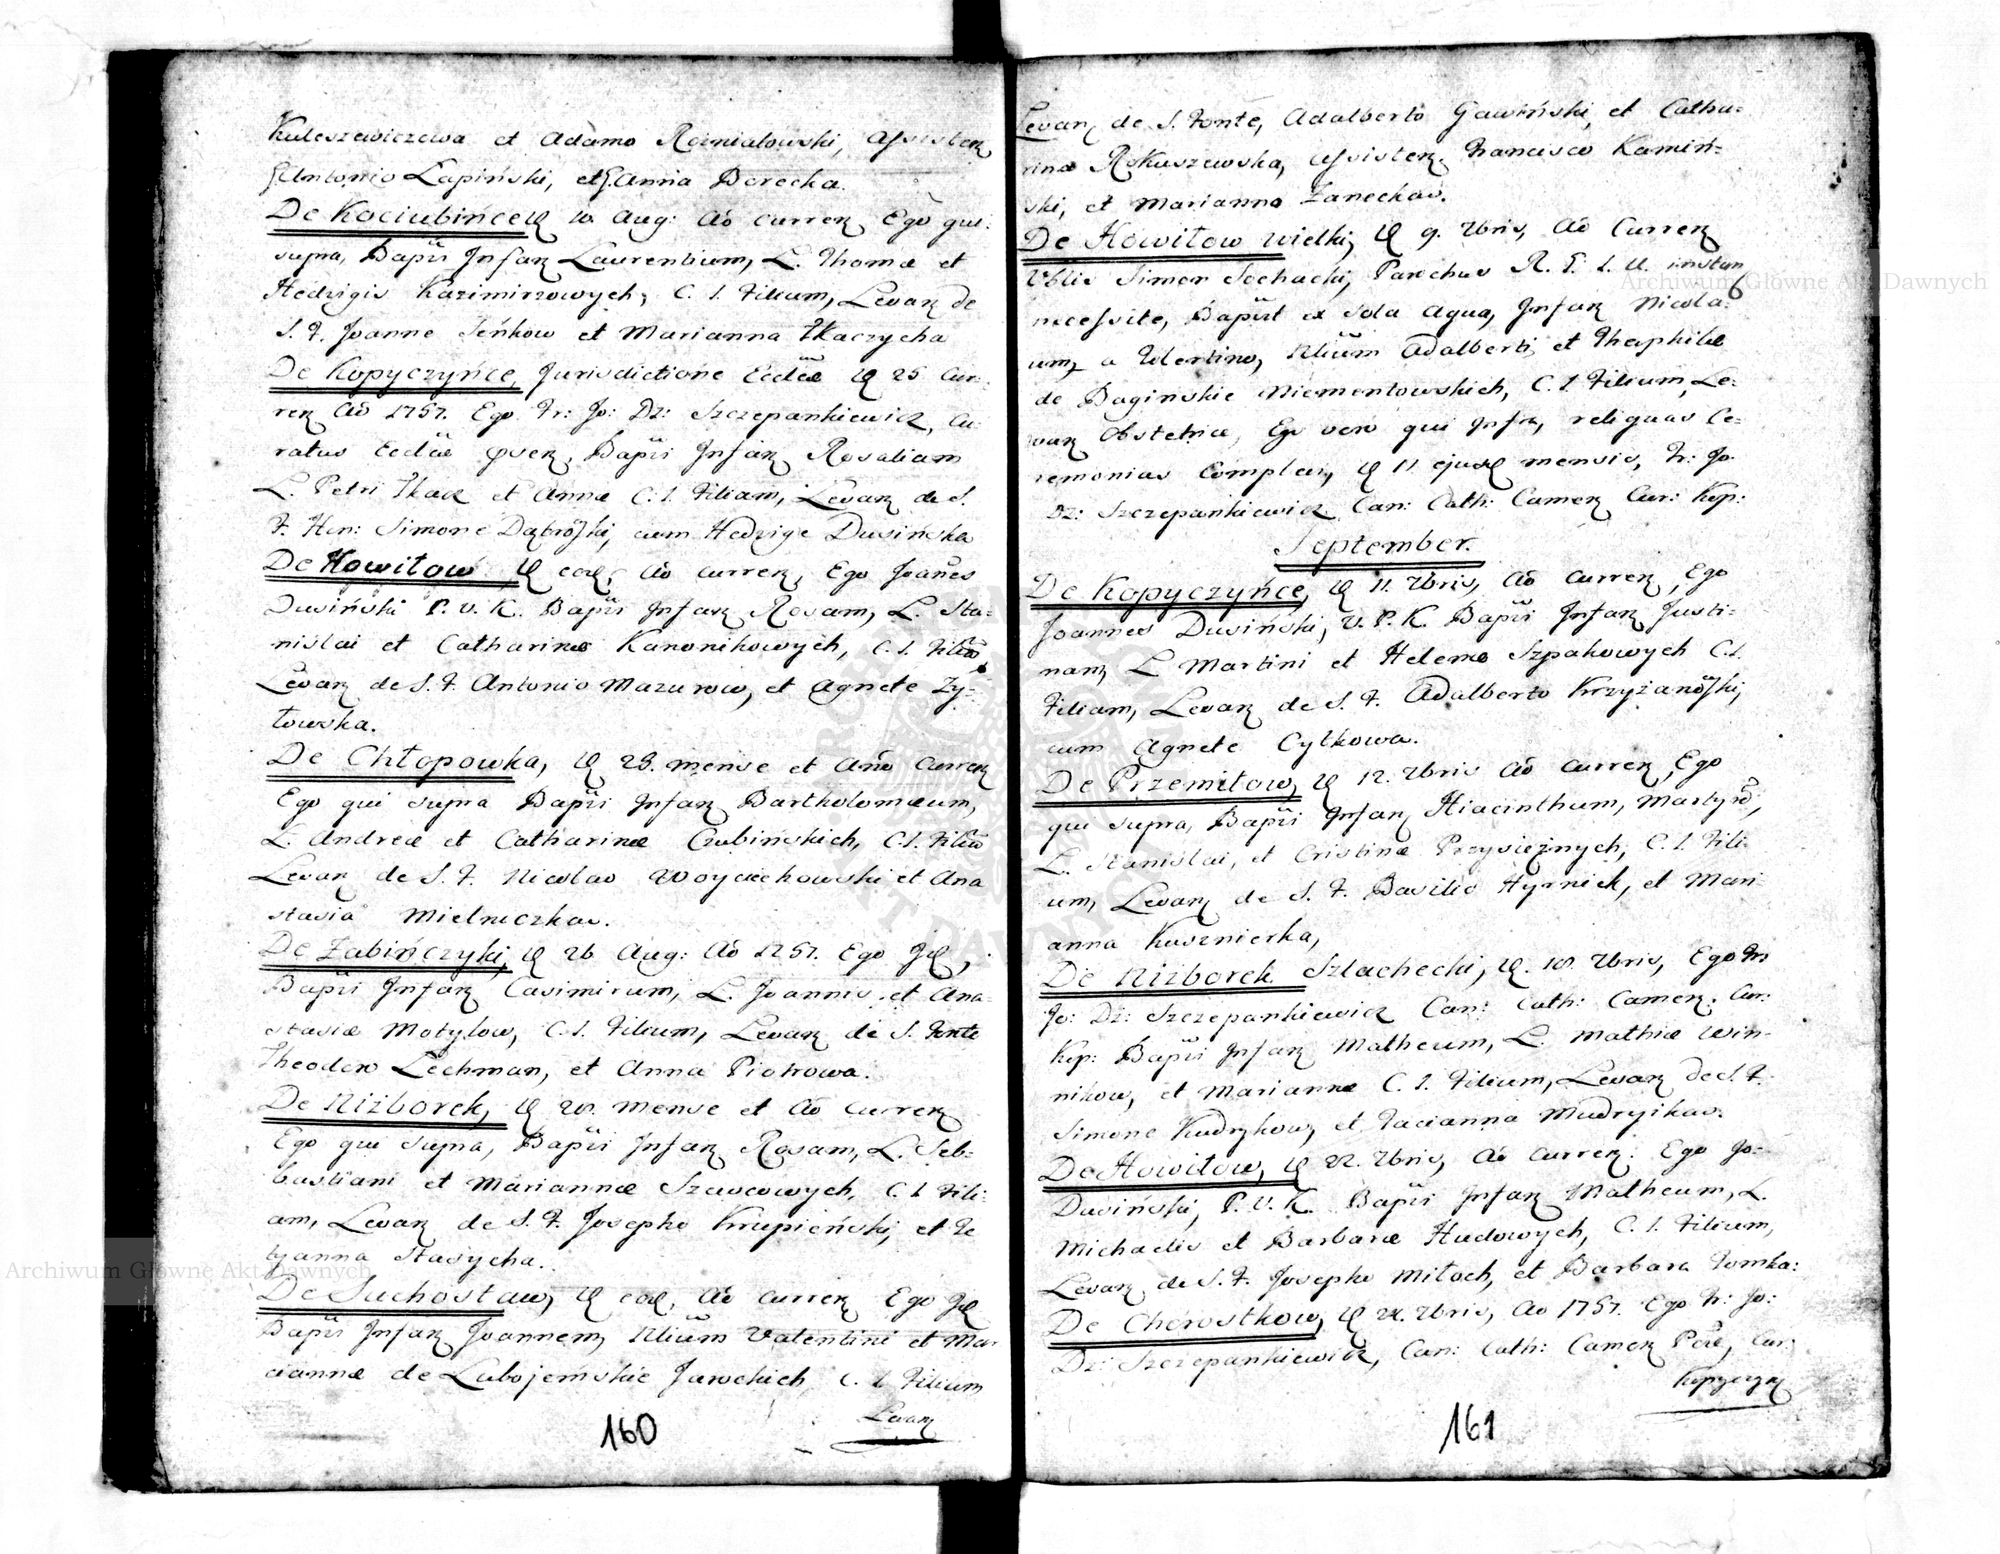 Kuleszewiczowa et Adamo Rozniatowski, assisten
Antonio Łapiński, et Anna Borecka.
De Kociubińce, 10 Aug: Aõ curren Ego qui
supra, Bapti Infan Laurentium, L. Thomæ et
Hedvigis Kazimirzowych, C. I. Filium, Levan de
S. F. Joanne Seńkow et Marianna Tkaczycha
De Kopyczyńce, Jurisdictione Ecclæ 25 Cur:
ren Aõ 1757. Ego Fr: Jo: Dz: Szczepankiewicz, Cu:
ratus Ecclæ, Bapti Infan Rosaliam
L. Petri Tkacz et Annæ C. I. Filiam, Levan de S.
F. Simone Dąbrõski, cum Hedvige Dusińska
De Howiłow, eod, Aõ curren, Ego Joañes
Dusiński P. V. K. Bapti Infan Rosam, L. Sta:
nislai et Catharinæ Kanonikowych, C. I. Filiã
Levan de S. F. Antonio Mazurow, et Agnete Zy:
łowska.
De Chłopowka, 25. mense et Anõ curren
Ego qui supra Bapti Infan Bartholomæum,
L. Andreæ et Catharinæ Czubińskich, C. I. Filiũ
Levan de S. F. Nicolao Woyciechowski et Ana
stasia Mielniczka.
De Żabińczyki, 26 Aug: Aõ 1757. Ego Id,
Bapti Infan Casimirum, L. Joannis et Ana:
stasiæ Motylow, C. I. Filium, Levan de S. Fonte
Theodoro Lechman, et Anna Piotrowa.
De Niżborek, mense et Aõ curren
Ego qui supra, Bapti Infan Rosam, L. Seb:
bastiani et Mariannæ Szewcowych, C. I. Fili:
am, Levan de S. F. Josepho Krupieński, et Te
tyanna Stasycha.
De Suchostaw, eod, Aõ curren Ego Id
Bapti Infan Joannem, Filium Valentini et Mar
riannæ de Lubojemskie Jarockich, C. I. Filium
Levan
160
Levan de S. Fonte, Adalberto Gawiński, et Catha:
rina Rokuszewska, assisten. Francisco Kamiń:
ski, et Marianna Zanecka.
De Howiłow wielki, 9. 7bris, Aõ Curren
Simon Sochacki, Parochus R. G. instan
necessite, Baptizt ex sola Aqua, Infan Nicola:
um, Filium Adalberti et Theophilæ
de Bagińskie Niementowskich, C. I. Filium, Le:
van Obstetrice, Ego vero qui Infra, reliquas Ce:
remonias Complevi, 11 ejusd mensis, Fr: Jo:
Dz: Szczepankiewicz Can: Cath: Camen Cur: Kop:
September.
De Kopyczyńce, 11. 7bris, Aõ curren, Ego
Joannes Dusiński, V. P. K. Bapti Infan Justi:
nam, L Martini et Helenæ Szpakowych C. I.
Filiam, Levan de S. F. Adalberto Krzyżanõski,
cum Agnete Cytkowa.
De Przemiłow, 12. 7bris Aõ curren, Ego
qui supra, Bapti Infan Hiacinthum,
L. Stanislai, et Cristinæ Przysieżnych, C. I. Fili:
um, Levan de S. F. Basilio Hyrniek, et Mari:
anna Kusznierka,
De Niżborek Szlachecki, 18. 7bris, Ego Fr:
Jo: Dz: Szczepankiewicz Can: Cath: Camen. Cur:
Kop: Bapti Infan Matheum, L. Mathiæ Win:
nikow, et Mariannæ C. I. Filium, Levan de S. F.
Simone Kudrykow, et Tacianna Mudryjka.
De Howiłow, 22. 7bris, Aõ curren. Ego Jo:
Dusiński, P. V. K. Bapti Infan Matheum, L.
Michaelis et Barbaræ Hudowych, C. I. Filium,
Levan de S. F. Josepho Mitoch, et Barbara Tomka:
De Chorostkow, 24. 7bris, Aõ 1757. Ego Fr: Jo:
Dz: Szczepankiewicz, Can: Cath: Camen Cur:
Kopyczyn
161
Archiwum Główne Akt Dawnych
Archiwum Główne Akt Dawnych